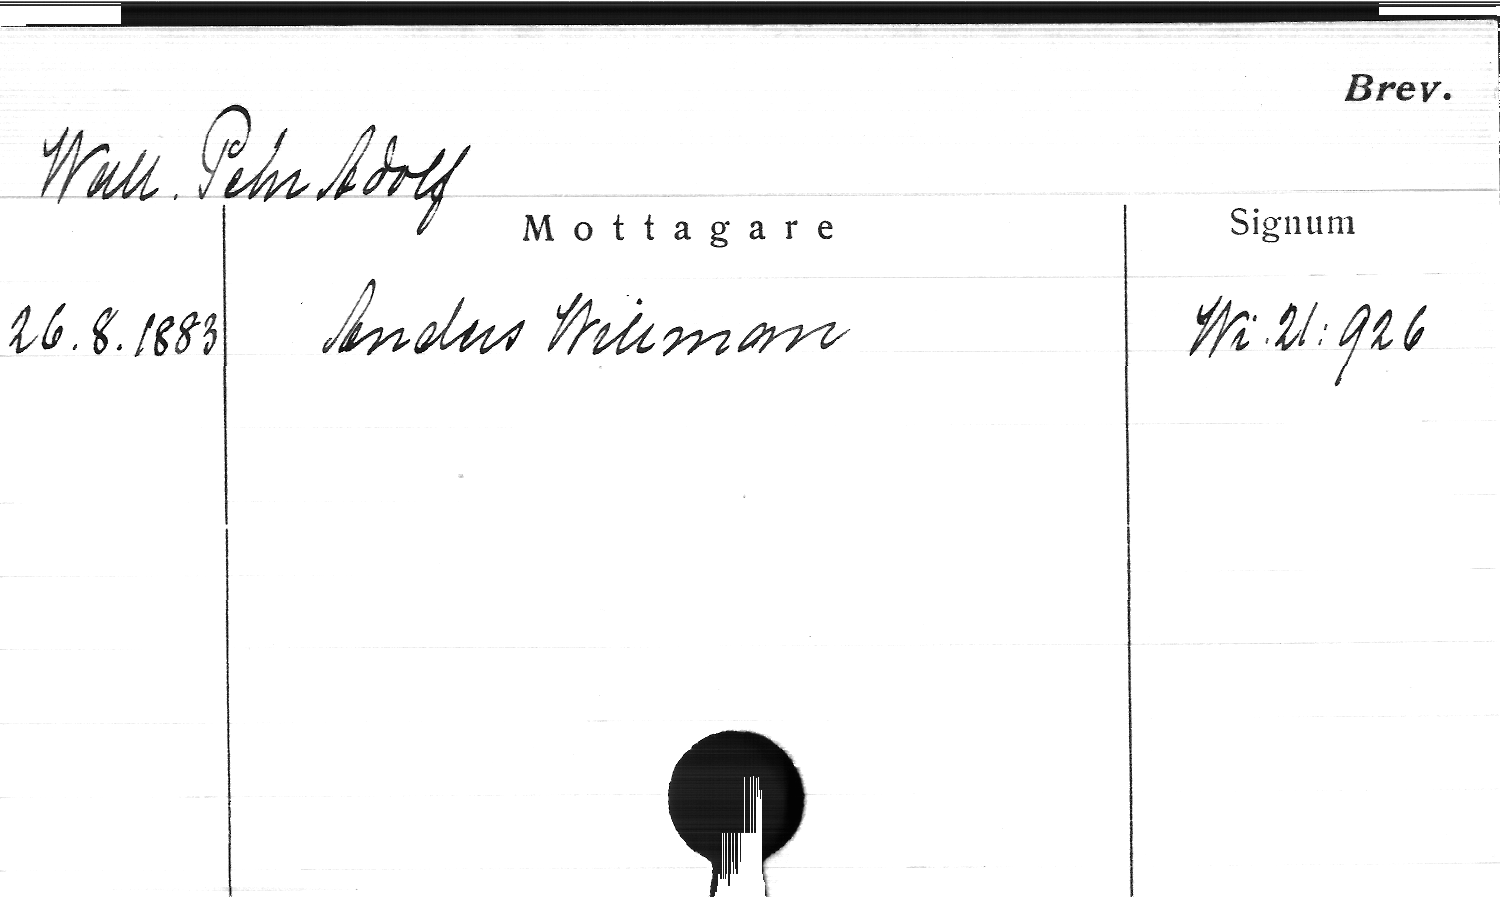 Brev.
Wall. Pehr Adolf
Mottagare
Signum
26.8.1883 Anders Willman Wi.21:926